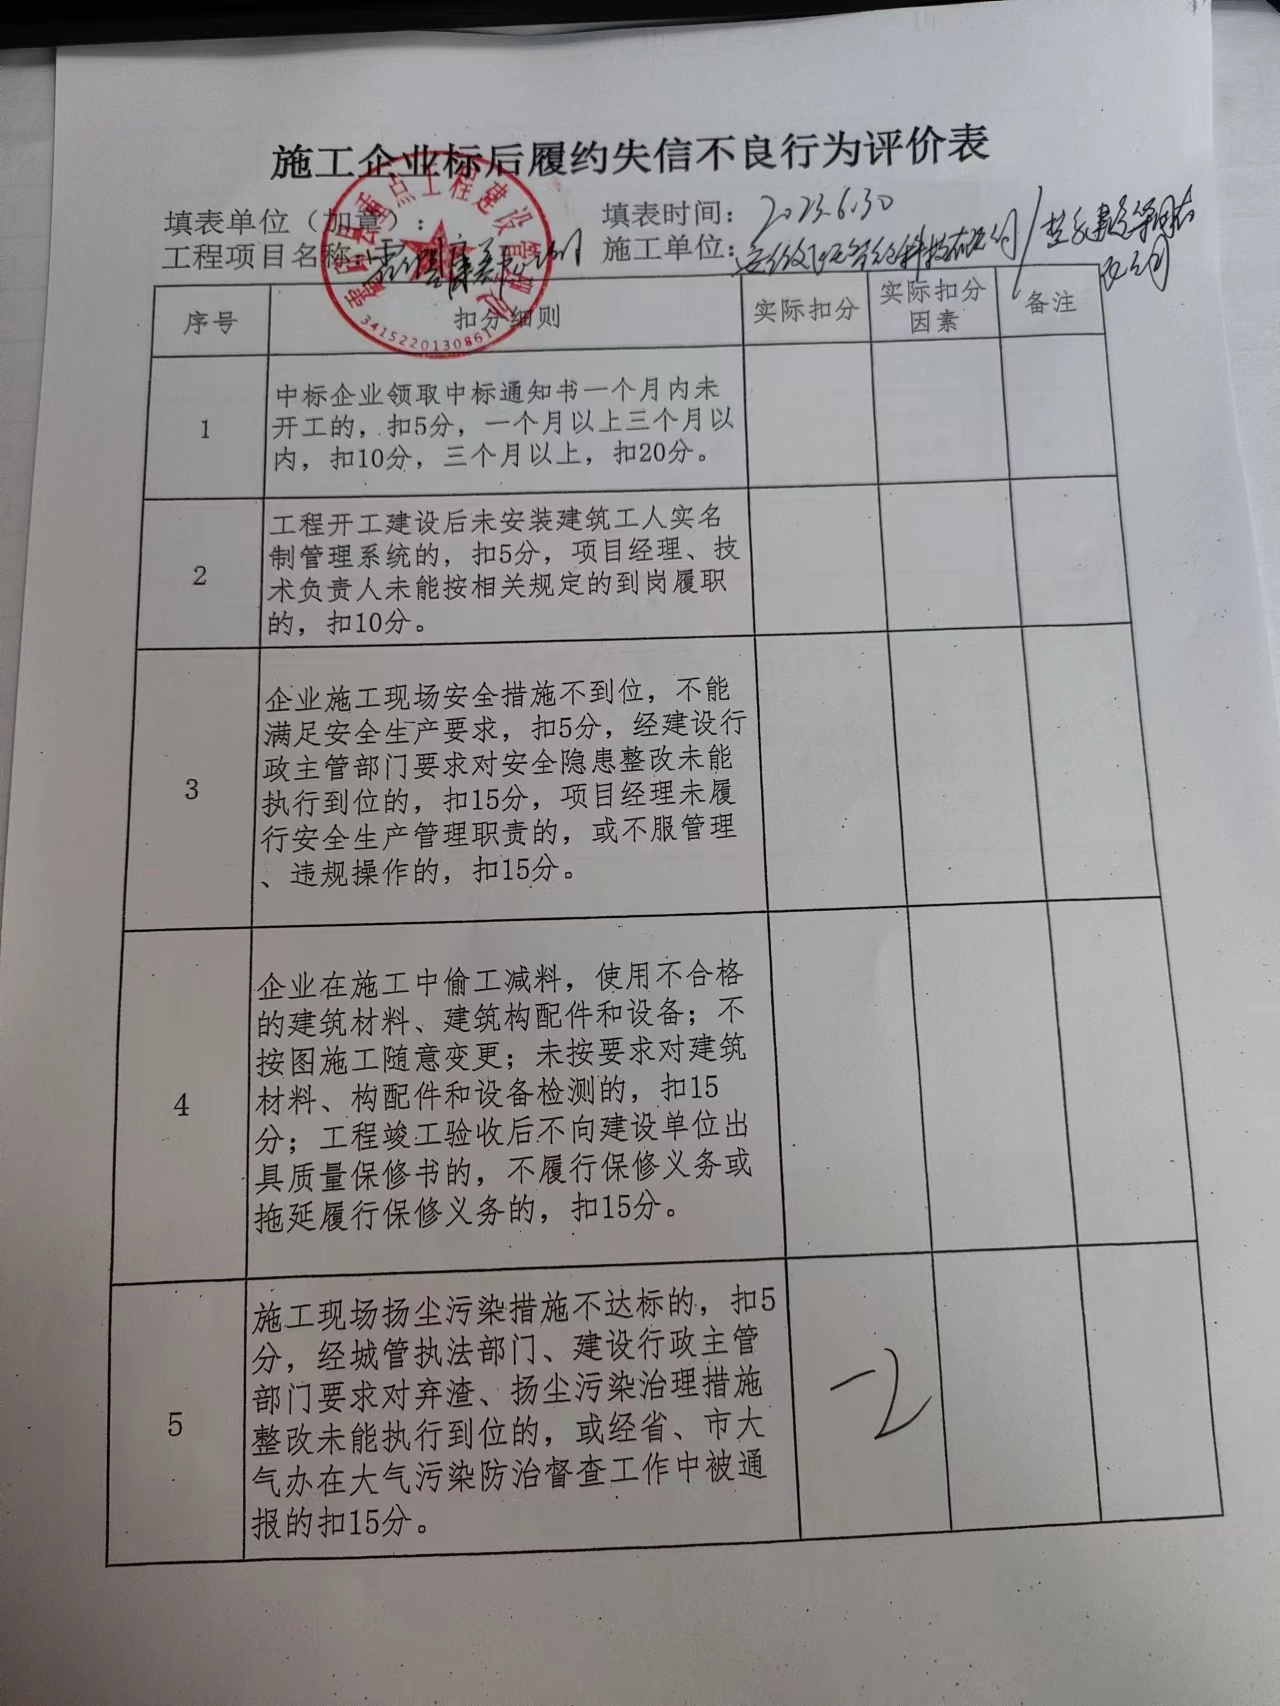 施工企业标后履约失信不良行为评价表
填表单位（加章）：
填表时间：2023.6.30
工程项目名称：
施工单位：
重点工程建设管
3415220130861
序号
扣分细则
实际扣分
实际扣分
因素
备注
1
中标企业领取中标通知书一个月内未
开工的，扣5分，一个月以上三个月以
内，扣10分，三个月以上，扣20分。
2
工程开工建设后未安装建筑工人实名
制管理系统的，扣5分，项目经理、技
术负责人未能按相关规定的到岗履职
的，扣10分。
3
企业施工现场安全措施不到位，不能
满足安全生产要求，扣5分，经建设行
政主管部门要求对安全隐患整改未能
执行到位的，扣15分，项目经理未履
行安全生产管理职责的，或不服管理
、违规操作的，扣15分。
4
企业在施工中偷工减料，使用不合格
的建筑材料、建筑构配件和设备；不
按图施工随意变更；未按要求对建筑
材料、构配件和设备检测的，扣15
分；工程竣工验收后不向建设单位出
具质量保修书的，不履行保修义务或
拖延履行保修义务的，扣15分。
5
施工现场扬尘污染措施不达标的，扣5
分，经城管执法部门、建设行政主管
部门要求对弃渣、扬尘污染治理措施
整改未能执行到位的，或经省、市大
气办在大气污染防治督查工作中被通
报的扣15分。
-2